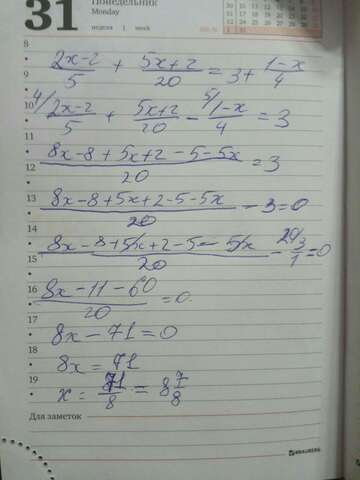 31
Понедельник
Monday
неделя | week
8
(2x-2)/5 + (5x+2)/20 = 3 + (1-x)/4
9
10
4/ (2x-2)/5 + (5x+2)/20 - 5/ (1-x)/4 = 3
11
12
(8x-8+5x+2-5-5x)/20 = 3
13
(8x-8+5x+2-5-5x)/20 - 3=0
14
15
(8x-8+5x+2-5-5x)/20 - 20/ 3/1 =0
16
(8x-11-60)/20 =0
17
8x-71=0
18
8x=71
19
x= 71/8 = 8 7/8
Для заметок
BRAUBERG